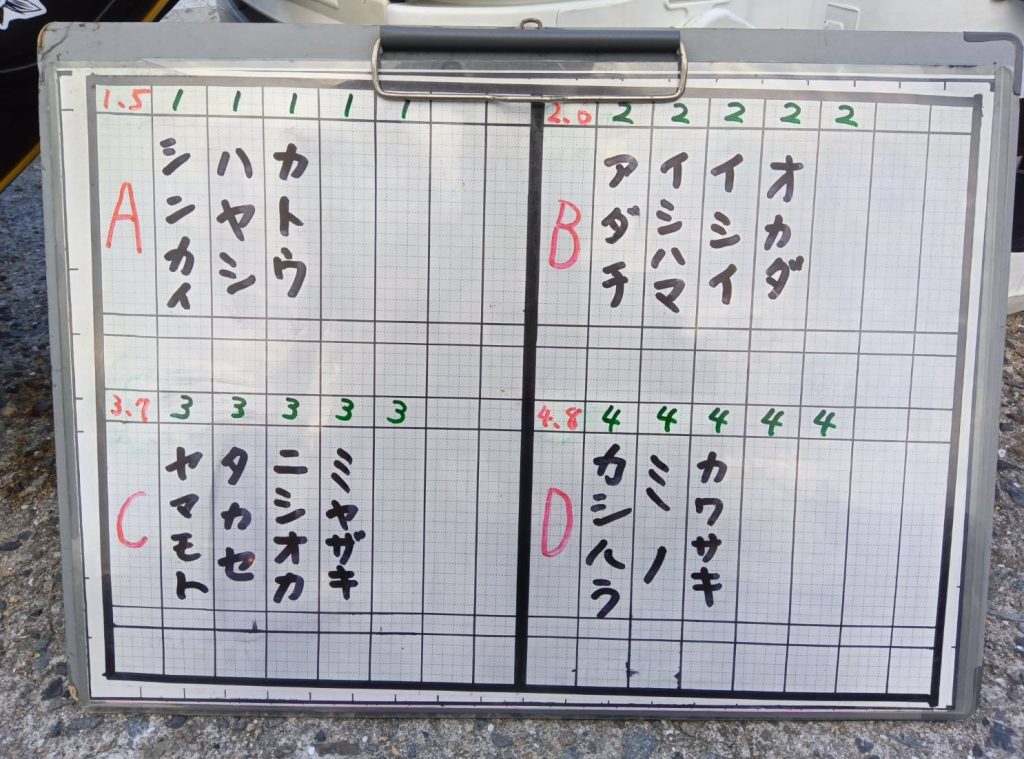 1.5 1 1 1 1 1
A
シンカイ
ハヤシ
カトウ
2.0 2 2 2 2 2
B
アダチ
イシハマ
イシイ
オカダ
3.7 3 3 3 3 3
C
ヤマモト
タカセ
ニシオカ
ミヤザキ
4.8 4 4 4 4 4
D
カシハラ
ミノ
カワサキ